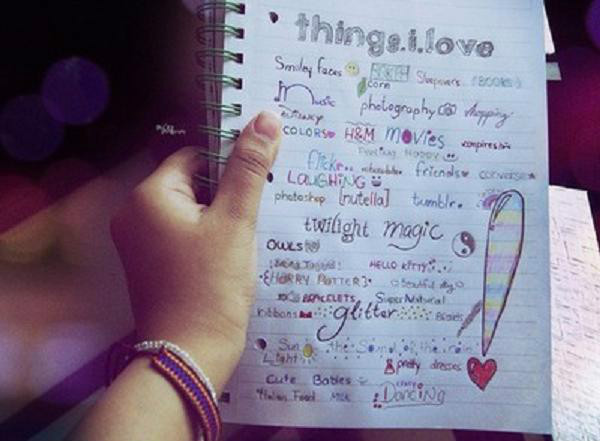 things.i.love
Smiley faces Sleepovers BOOKS
corn
music photography shopping
COLORS H&M Movies vampires
Feeling Happy
flickr friends converse
LAUGHING
photoshop [nutella] tumblr.
twilight magic
OWLS
Being Tagged! HELLO KITTY
{HARRY POTTER} Beautiful day
BRACELETS SuperNatural
Ribbons glitter Beads
Sun the Sound of the rain
Light pretty dresses
Cute Babies crazy
Italian Food Milk Dancing